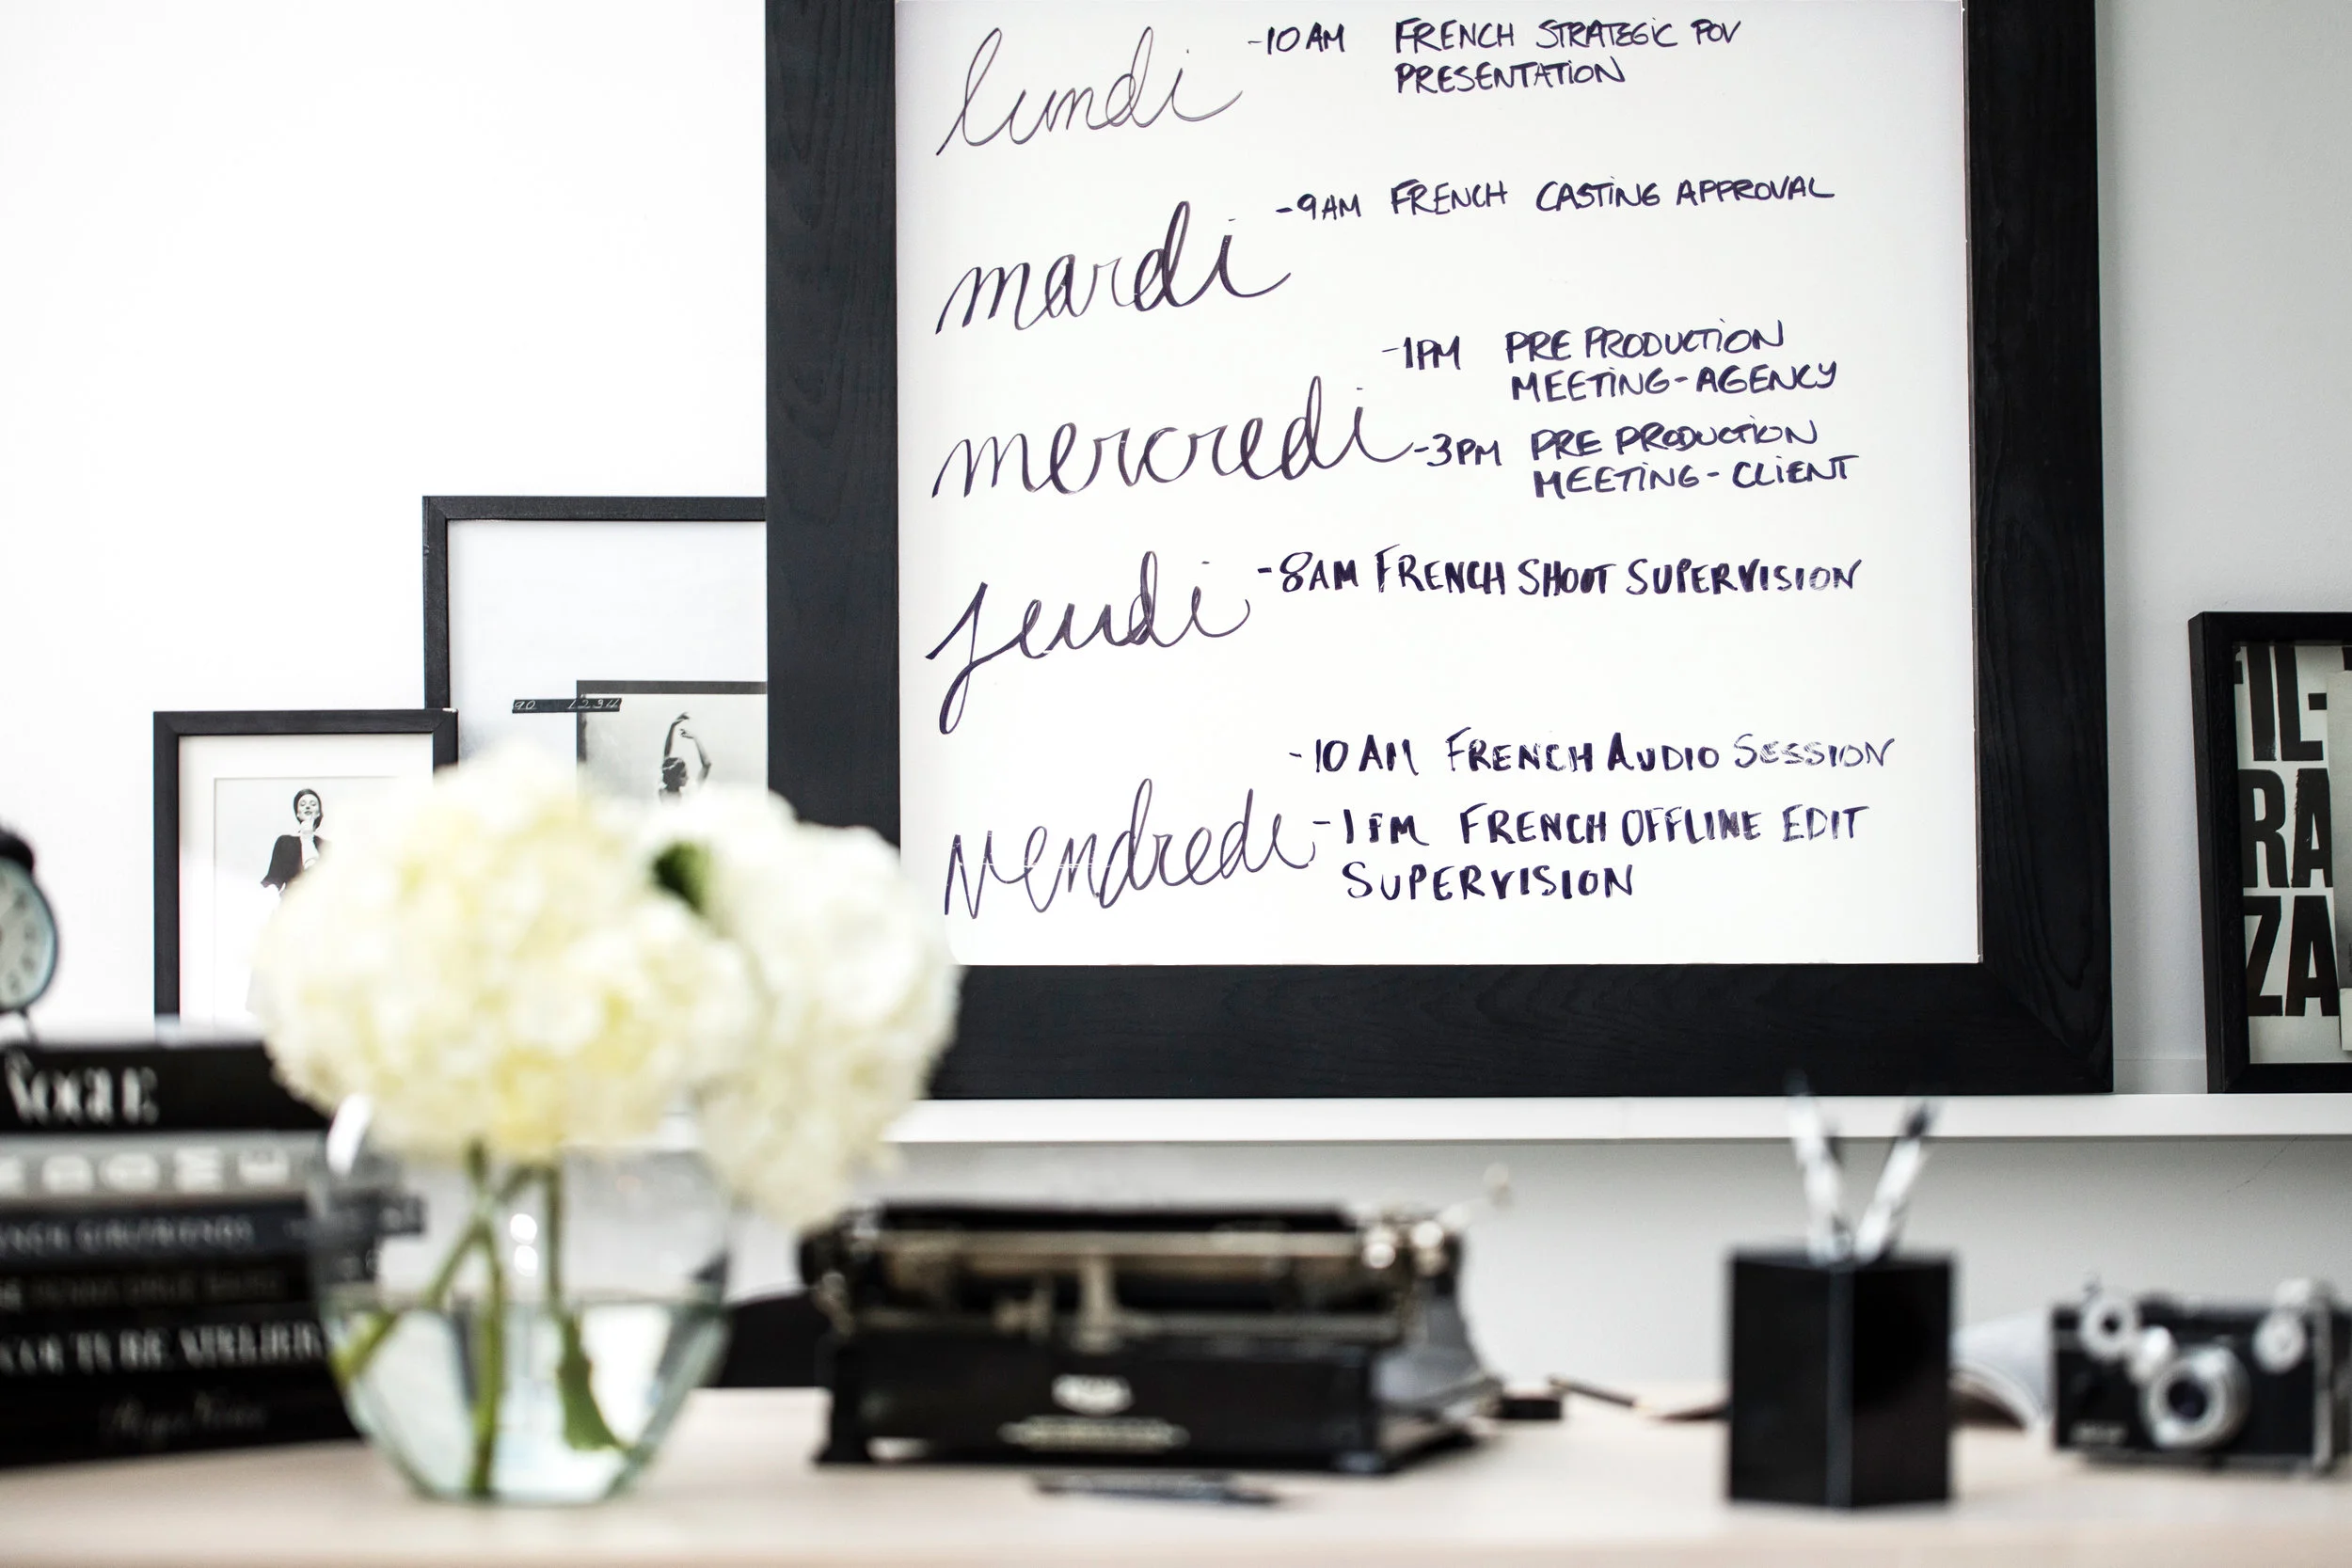 lundi -10AM FRENCH STRATEGIC POV
PRESENTATION
mardi -9AM FRENCH CASTING APPROVAL
-1PM PRE PRODUCTION
MEETING-AGENCY
mercredi -3PM PRE PRODUCTION
MEETING-CLIENT
jeudi -8AM FRENCH SHOOT SUPERVISION
-10AM FRENCH AUDIO SESSION
vendredi -1PM FRENCH OFFLINE EDIT
SUPERVISION
IL-
RA
ZA
VOGUE
COUTURE ATELIER